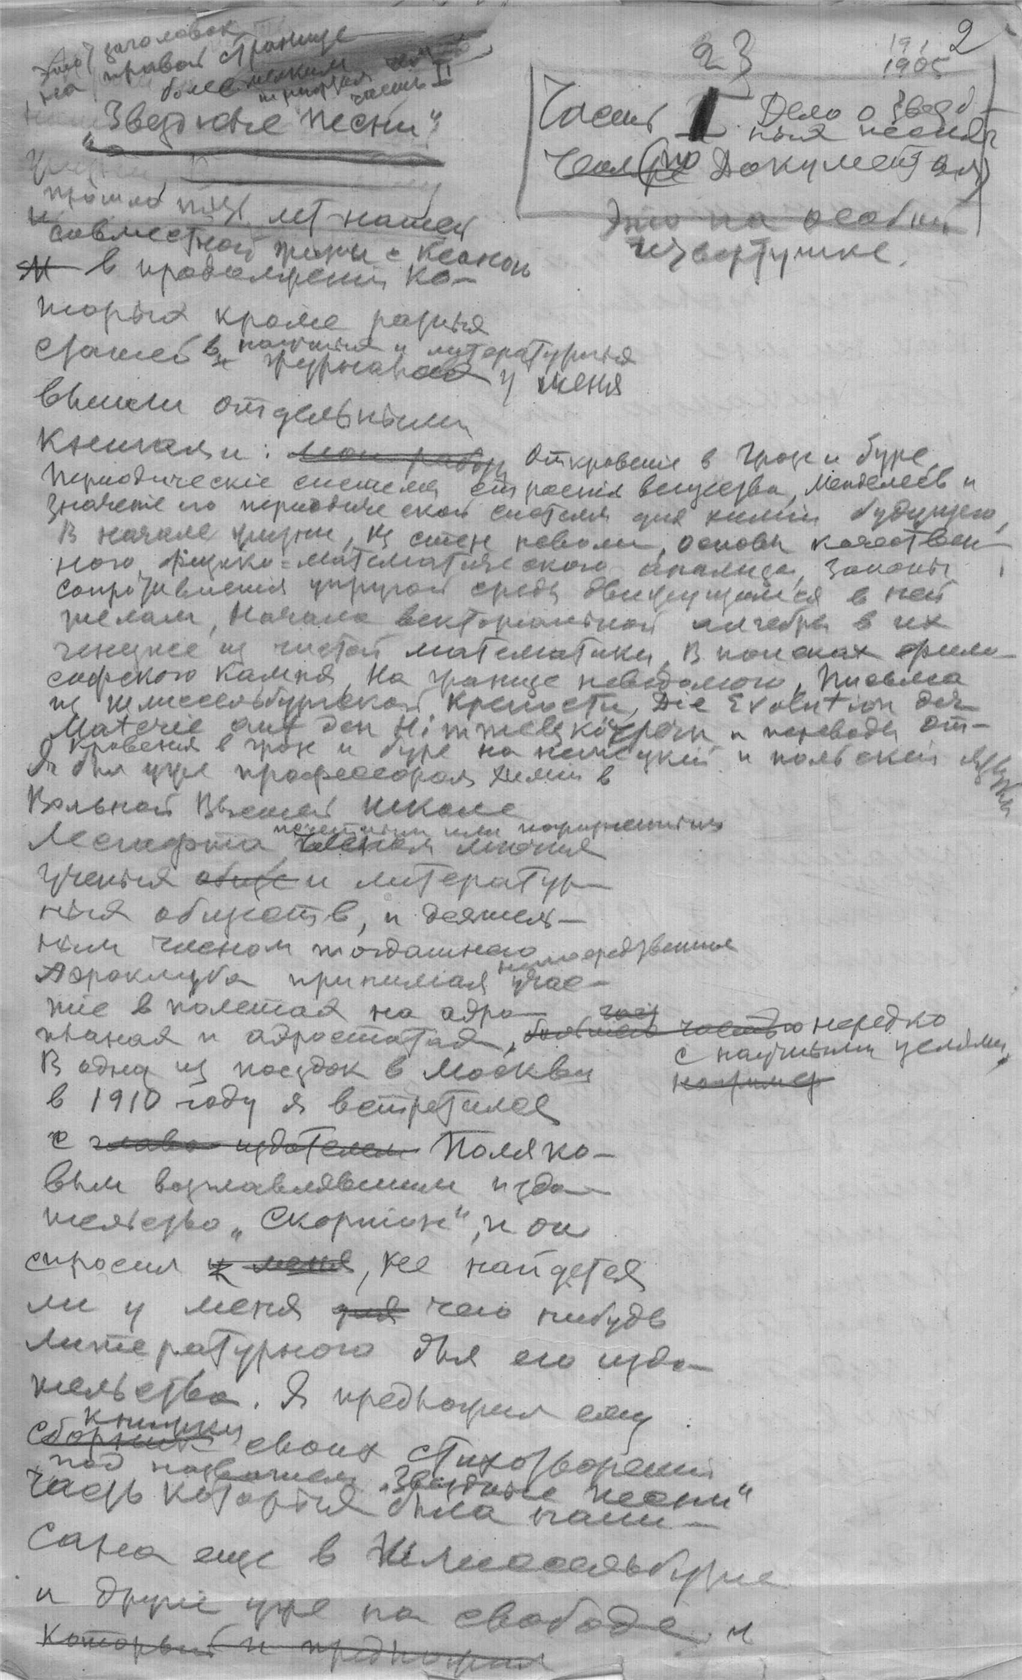 этот заголовок
на правой странице
более мелким
чем часть II
„Звездные песни“
23
2
1905
Часть I. Дело о Звезд-
ных песнях
(по документам)
Это на особой
четвертушке.
прошло пять лет нашей
совместной жизни с Ксаной
и в продолжении ко-
торых кроме разных
статей в научных и литературных
журналах у меня
вышли отдельными
книгами: мои работы Откровение в грозе и буре,
Периодические системы строения вещества, Менделеев и
значение его периодической системы для химии будущего,
В начале жизни, Из стен неволи, Основы качествен-
ного физико-математического анализа, Законы
сопротивления упругой среды движущимся в ней
телам, Начала векториальной алгебры в их
генезисе из чистой математики, В поисках фило-
софского камня, На границе неведомого, Письма
из Шлиссельбургской крепости, Die Evolution der
Materie auf den Himmelskörpern и переводы От-
кровения в грозе и буре на немецкий и польский языки
Я был уже профессором химии в
Вольной Высшей школе
Лесгафта, почетным или
членом многих
ученых общ и литератур-
ных обществ, и деятель-
ным членом тогдашнего
Аэроклуба принимая непосредственное учас-
тие в полетах на аэро-
планах и аэростатах, большею частью нередко
с научными целями,
например
В одну из поездок в Москву
в 1910 году я встретился
с издателем Поляко-
вым возглавлявшим изда-
тельство „Скорпион“, и он
спросил у меня, не найдется
ли у меня для чего нибудь
литературного для его изда-
тельства. Я предложил ему
книжку
сборник своих стихотворений
под названием „Звездные песни“
часть которых была напи-
сана еще в Шлиссельбурге
и другие уже на свободе и
который и предложил